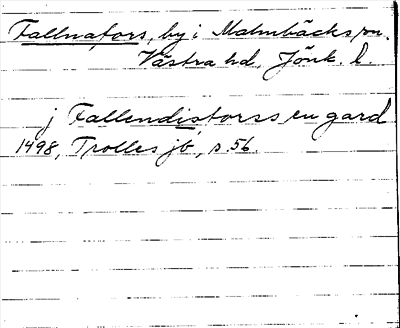 Fallnafors, by i Malmbäcks sn.
Västra hd, Jönk. l.
j Fallendistorss en gard
1498, Trolles jb, s. 56.